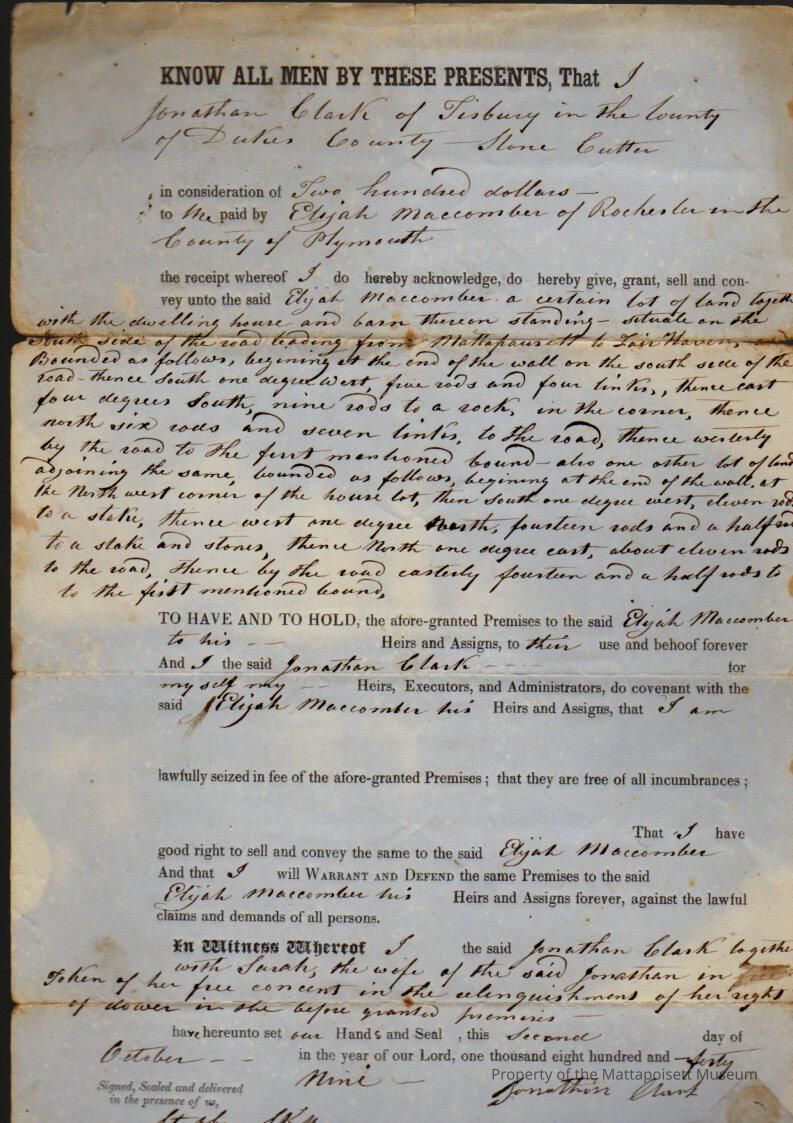 KNOW ALL MEN BY THESE PRESENTS, That I
Jonathan Clark of Tisbury in the County
of Dukes County - Stone Cutter
in consideration of Two hundred dollars -
to Me paid by Elijah Maccomber of Rochester in the
County of Plymouth
the receipt whereof I do hereby acknowledge, do hereby give, grant, sell and con-
vey unto the said Elijah Maccomber a certain lot of land togeth
with the dwelling house and barn thereon standing - situate on the
South side of the road leading from Mattapausett to Fair Haven, and
Bounded as follows, begining at the end of the wall on the south side of the
road - thence South one degree West, five rods and four links, thence east
four degrees South, nine rods to a rock, in the corner, thence
north six rods and seven links, to the road, thence westerly
by the road to the first mentioned bound - also one other lot of land
adjoining the same, bounded as follows, begining at the end of the wall, at
the North west corner of the house lot, then South one degree west, eleven rods
to a stake, thence west one degree North, fourteen rods and a half rod
to a stake and stones, thence North one degree east, about eleven rods
to the road, thence by the road easterly fourteen and a half rods to
to the first mentioned bound,
TO HAVE AND TO HOLD, the afore-granted Premises to the said Elijah Maccomber
to his - - Heirs and Assigns, to their use and behoof forever
And I the said Jonathan Clark - - - - for
my self my - - Heirs, Executors, and Administrators, do covenant with the
said Elijah Maccomber his Heirs and Assigns, that I am
lawfully seized in fee of the afore-granted Premises ; that they are free of all incumbrances ;
That I have
good right to sell and convey the same to the said Elijah Maccomber
And that I will WARRANT AND DEFEND the same Premises to the said
Elijah Maccomber his Heirs and Assigns forever, against the lawful
claims and demands of all persons.
In Witness Whereof I the said Jonathan Clark togethe
with Sarah, the wife of the said Jonathan in
Token of her free concent in the relinquishment of her right
of dower in the before granted premises -
have hereunto set our Hands and Seal , this Second day of
October - - in the year of our Lord, one thousand eight hundred and forty
Nine -
Property of the Mattapoisett Museum
Signed, Sealed and delivered
in the presence of us,
Jonathan Clark